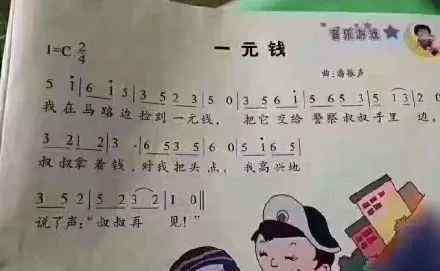 音乐游戏
1=C 2/4
一元钱
曲:潘振声
5 i | 6 i 5 | 3 5 2 3 | 5 0 | 3 5 6 i | 5 6 5 3 | 5 1 3 | 2 0
我在马路边捡到一元钱, 把它交给警察叔叔手里边,
3 2 1 2 | 3 · 6 | 5 5 3 5 | 6 0 | 5 i 6 5 |
叔叔拿着钱,对我把头点, 我高兴地
3 5 2 | 5 2 3 2 | 1 0 ‖
说了声:"叔叔再见!"